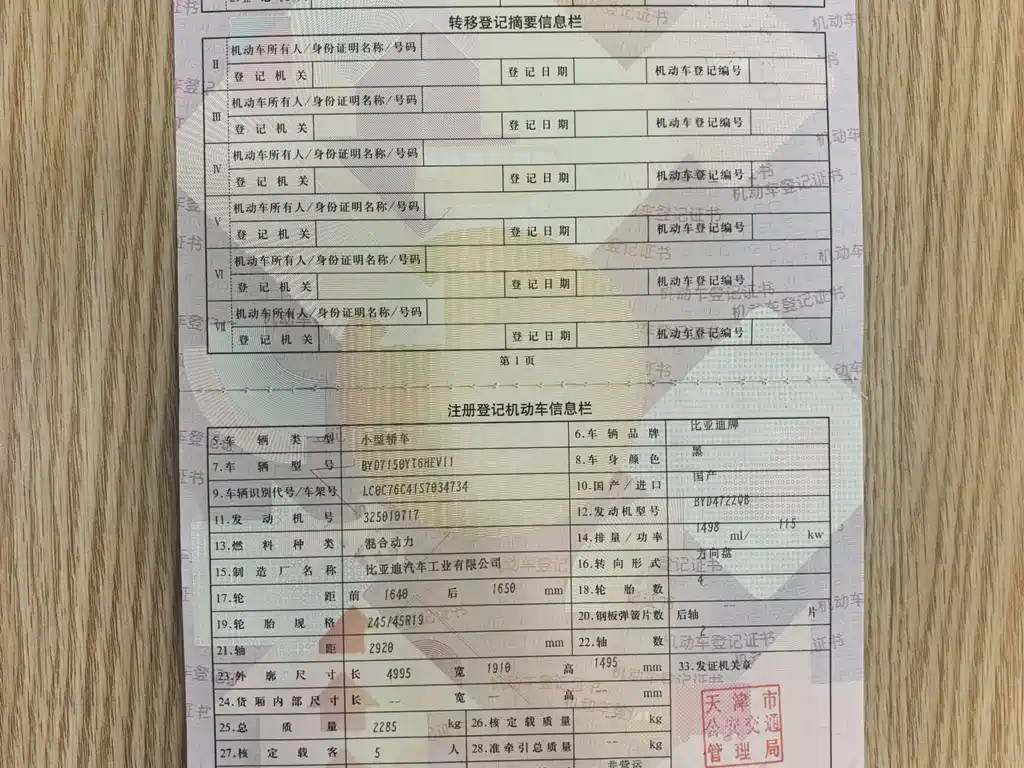 转移登记摘要信息栏
II 机动车所有人/身份证明名称/号码
登记机关 登记日期 机动车登记编号
III 机动车所有人/身份证明名称/号码
登记机关 登记日期 机动车登记编号
IV 机动车所有人/身份证明名称/号码
登记机关 登记日期 机动车登记编号
V 机动车所有人/身份证明名称/号码
登记机关 登记日期 机动车登记编号
VI 机动车所有人/身份证明名称/号码
登记机关 登记日期 机动车登记编号
VII 机动车所有人/身份证明名称/号码
登记机关 登记日期 机动车登记编号
第1页
注册登记机动车信息栏
5.车辆类型 小型轿车 6.车辆品牌 比亚迪牌
7.车辆型号 BYD7150YT6HEV11 8.车身颜色 黑
9.车辆识别代号/车架号 LC0C76C41S7034734 10.国产/进口 国产
11.发动机号 325010717 12.发动机型号 BYD472ZQB
13.燃料种类 混合动力 14.排量/功率 1498 ml/ 115 kw
15.制造厂名称 比亚迪汽车工业有限公司 16.转向形式 方向盘
17.轮距 前 1640 后 1650 mm 18.轮胎数 4
19.轮胎规格 245/45R19 20.钢板弹簧片数 后轴 -- 片
21.轴距 2920 mm 22.轴数 2
23.外廓尺寸 长 4995 宽 1910 高 1495 mm 33.发证机关章
24.货厢内部尺寸 长 -- 宽 -- 高 -- mm
25.总质量 2285 kg 26.核定载质量 -- kg
27.核定载客 5 人 28.准牵引总质量 -- kg
非营运
天津市
公安交通
管理局